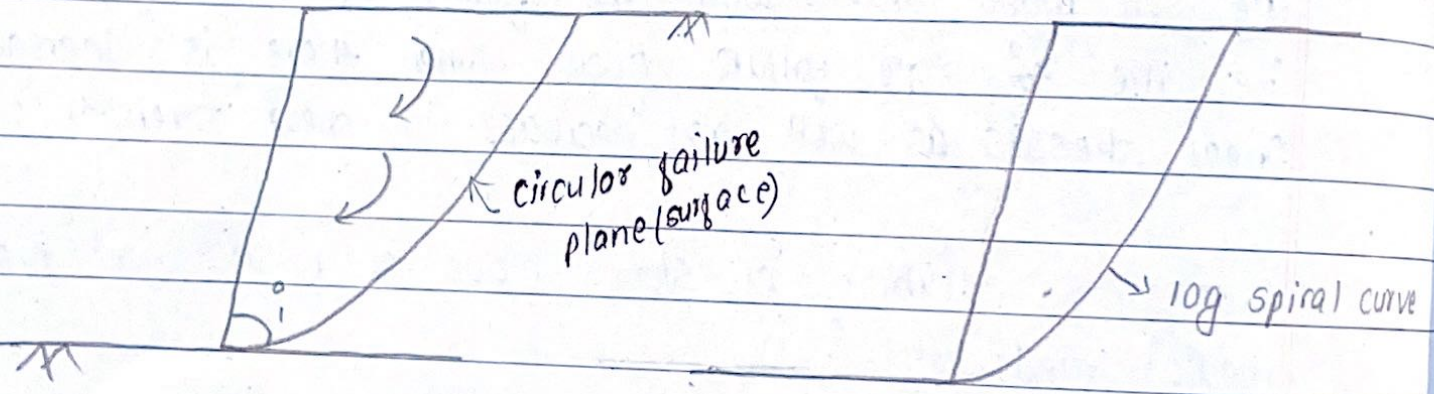 circular failure
plane(surface)
i
log spiral curve